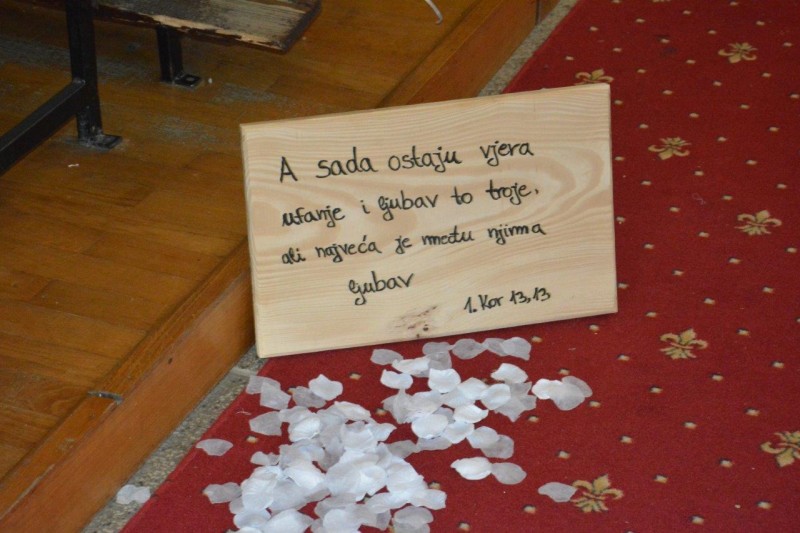 A sada ostaju vjera
ufanje i ljubav to troje,
ali najveća je među njima
ljubav
1. Kor 13,13